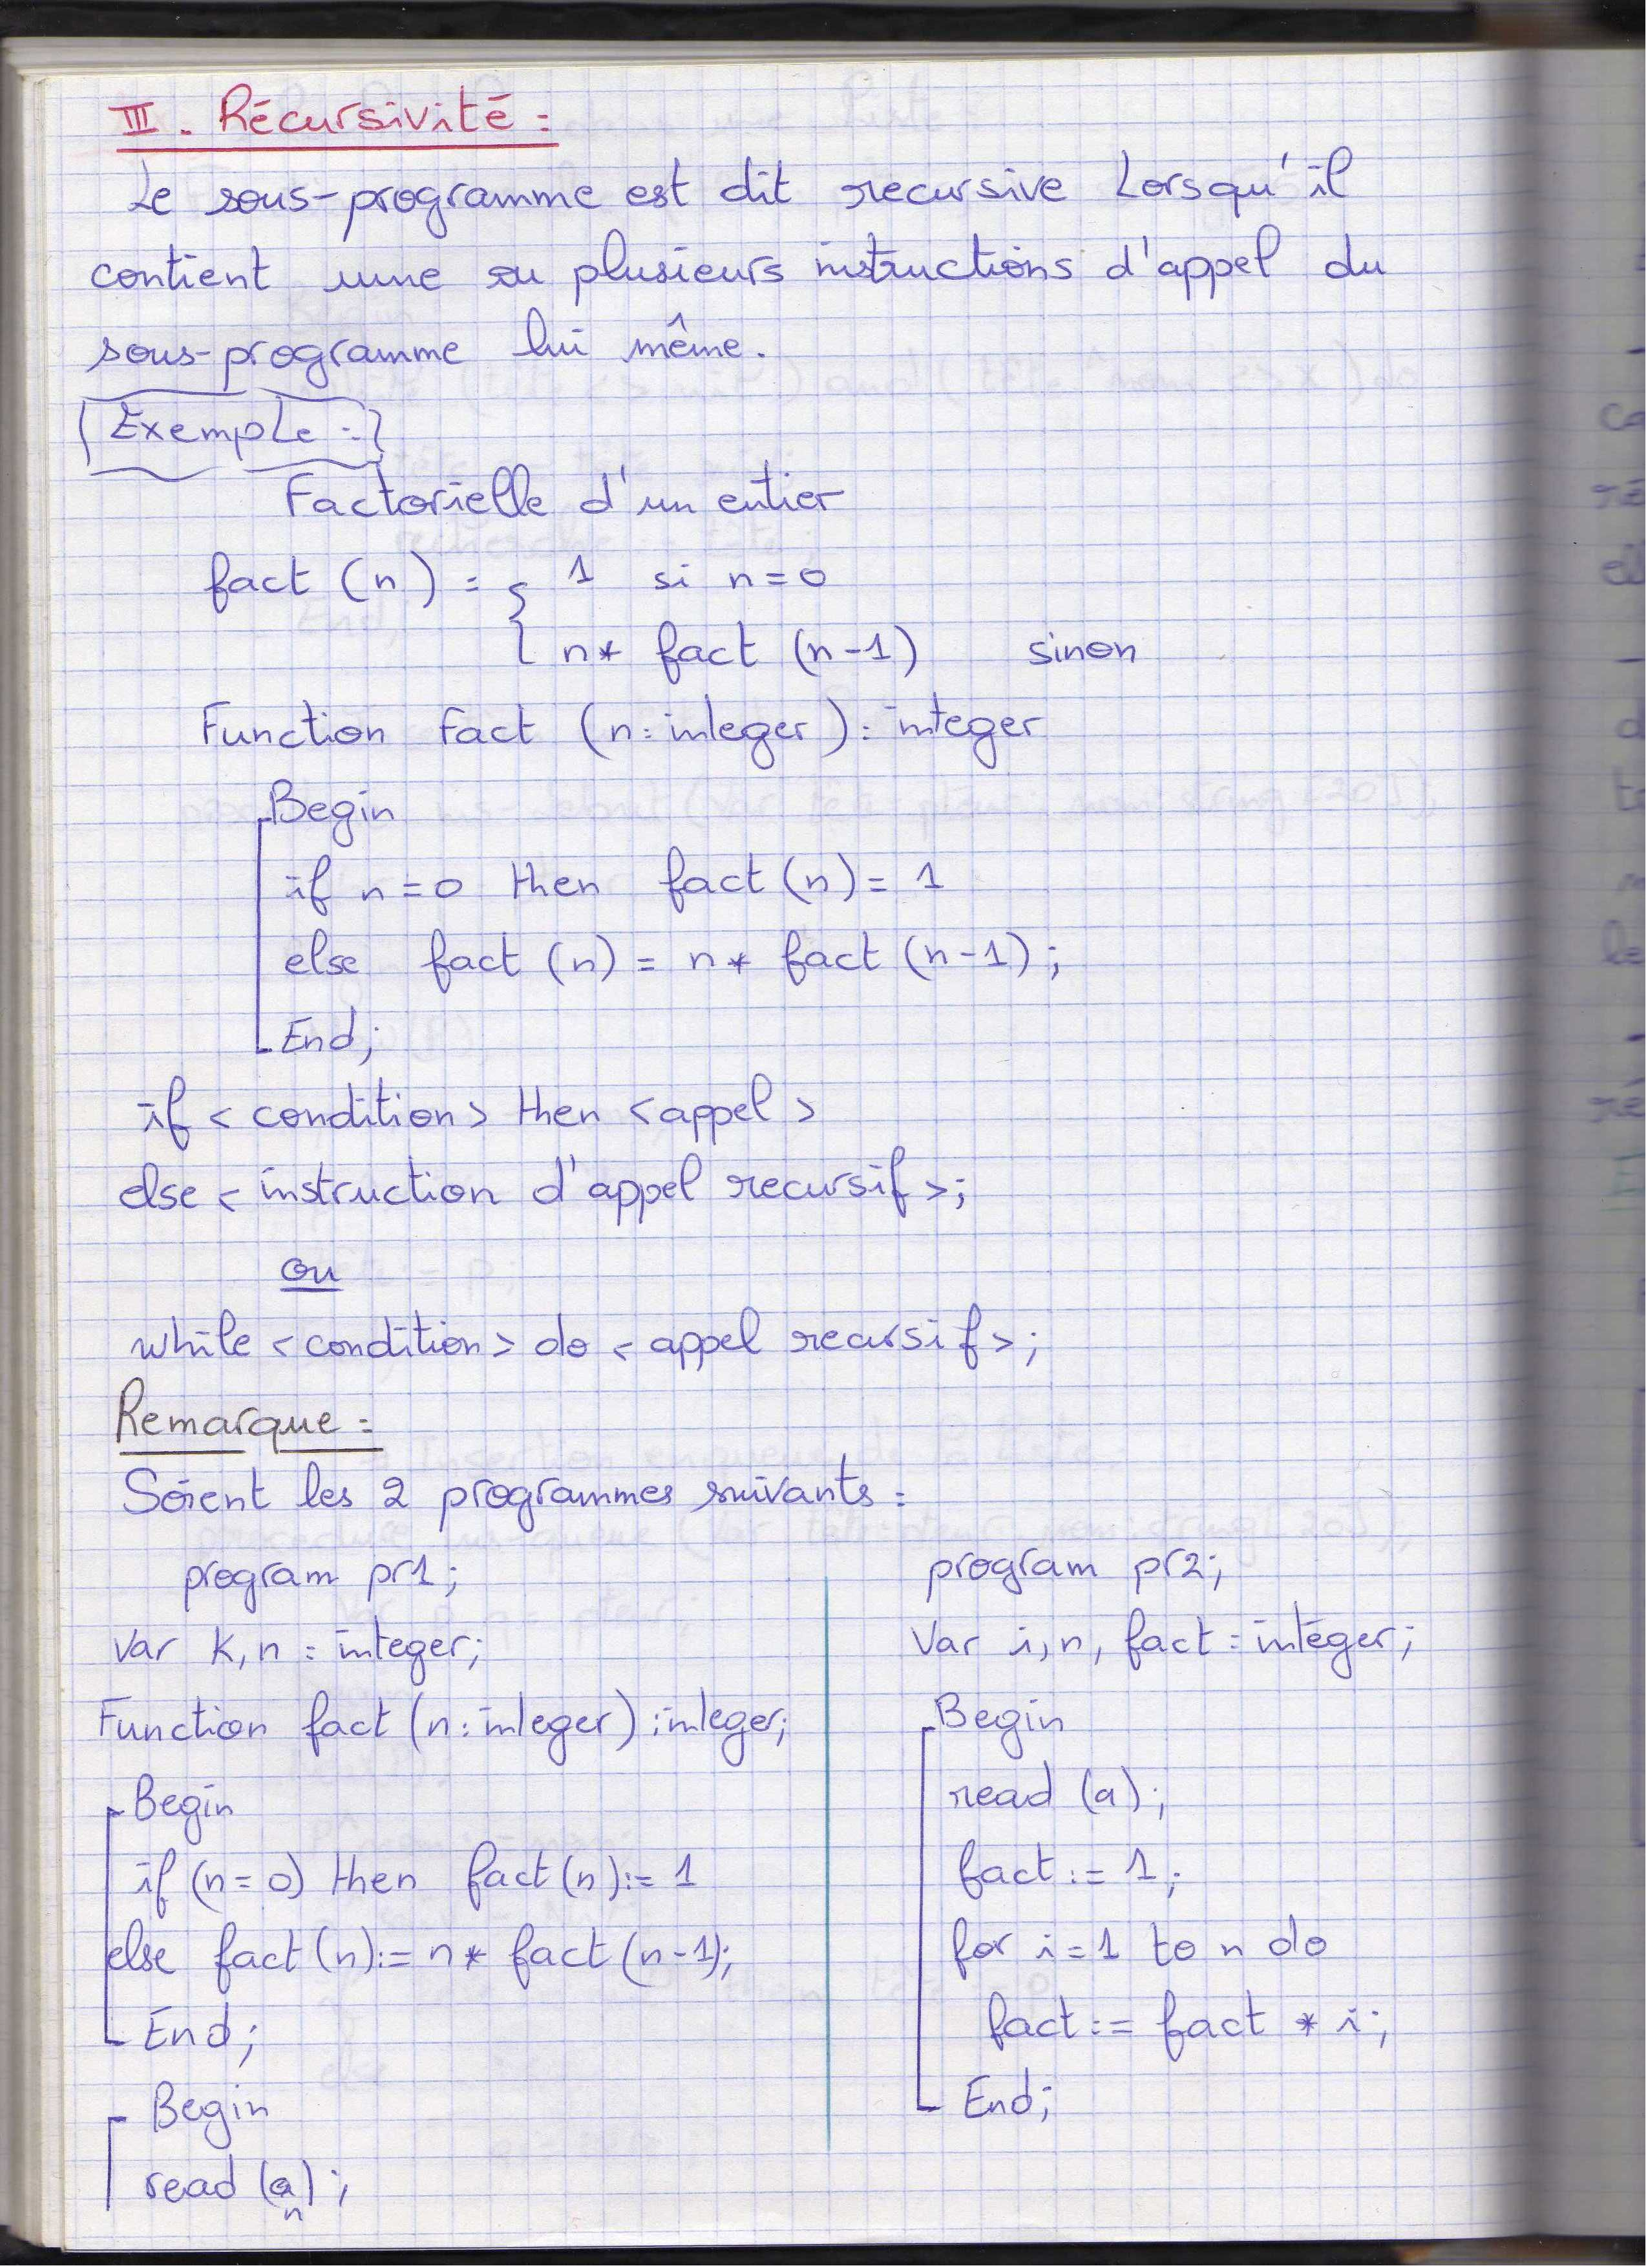 III. Récursivité :
Le sous-programme est dit recursive Lorsqu'il
contient une ou plusieurs instructions d'appel du
sous-programme lui même.
Exemple :
Factorielle d'un entier
fact (n) = { 1 si n=0
{ n* fact (n-1) sinon
Function Fact (n: integer): integer
Begin
if n=0 then fact(n)= 1
else fact (n) = n* fact (n-1);
End;
if <condition> then <appel>
else < instruction d'appel recursif>;
ou
while <condition> do < appel recursif>;
Remarque :
Soient les 2 programmes suivants :
program pr1;
Var K,n : integer;
Function fact (n: integer) : integer;
Begin
if (n=0) then fact(n):= 1
else fact (n):= n* fact (n-1);
End;
Begin
read (a);
n
program pr2;
Var i,n, fact : integer;
Begin
read (a);
fact := 1;
for i=1 to n do
fact := fact * i;
End;